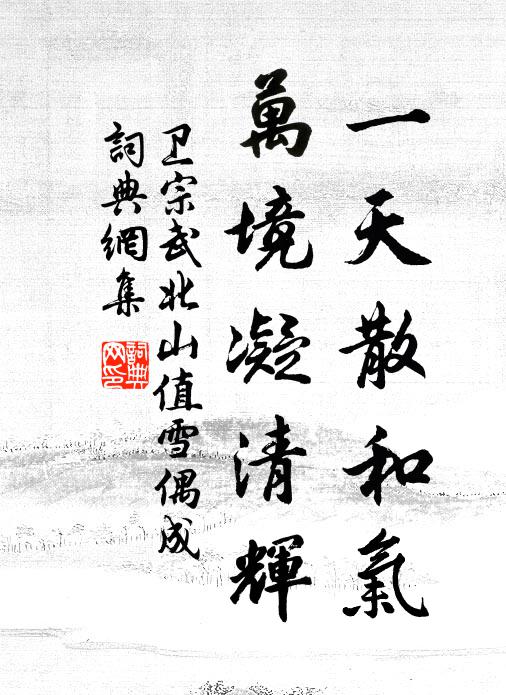 一天散和氣
萬境凝清輝
卫宗武北山值雪偶成
詞典網集
詞典
网印